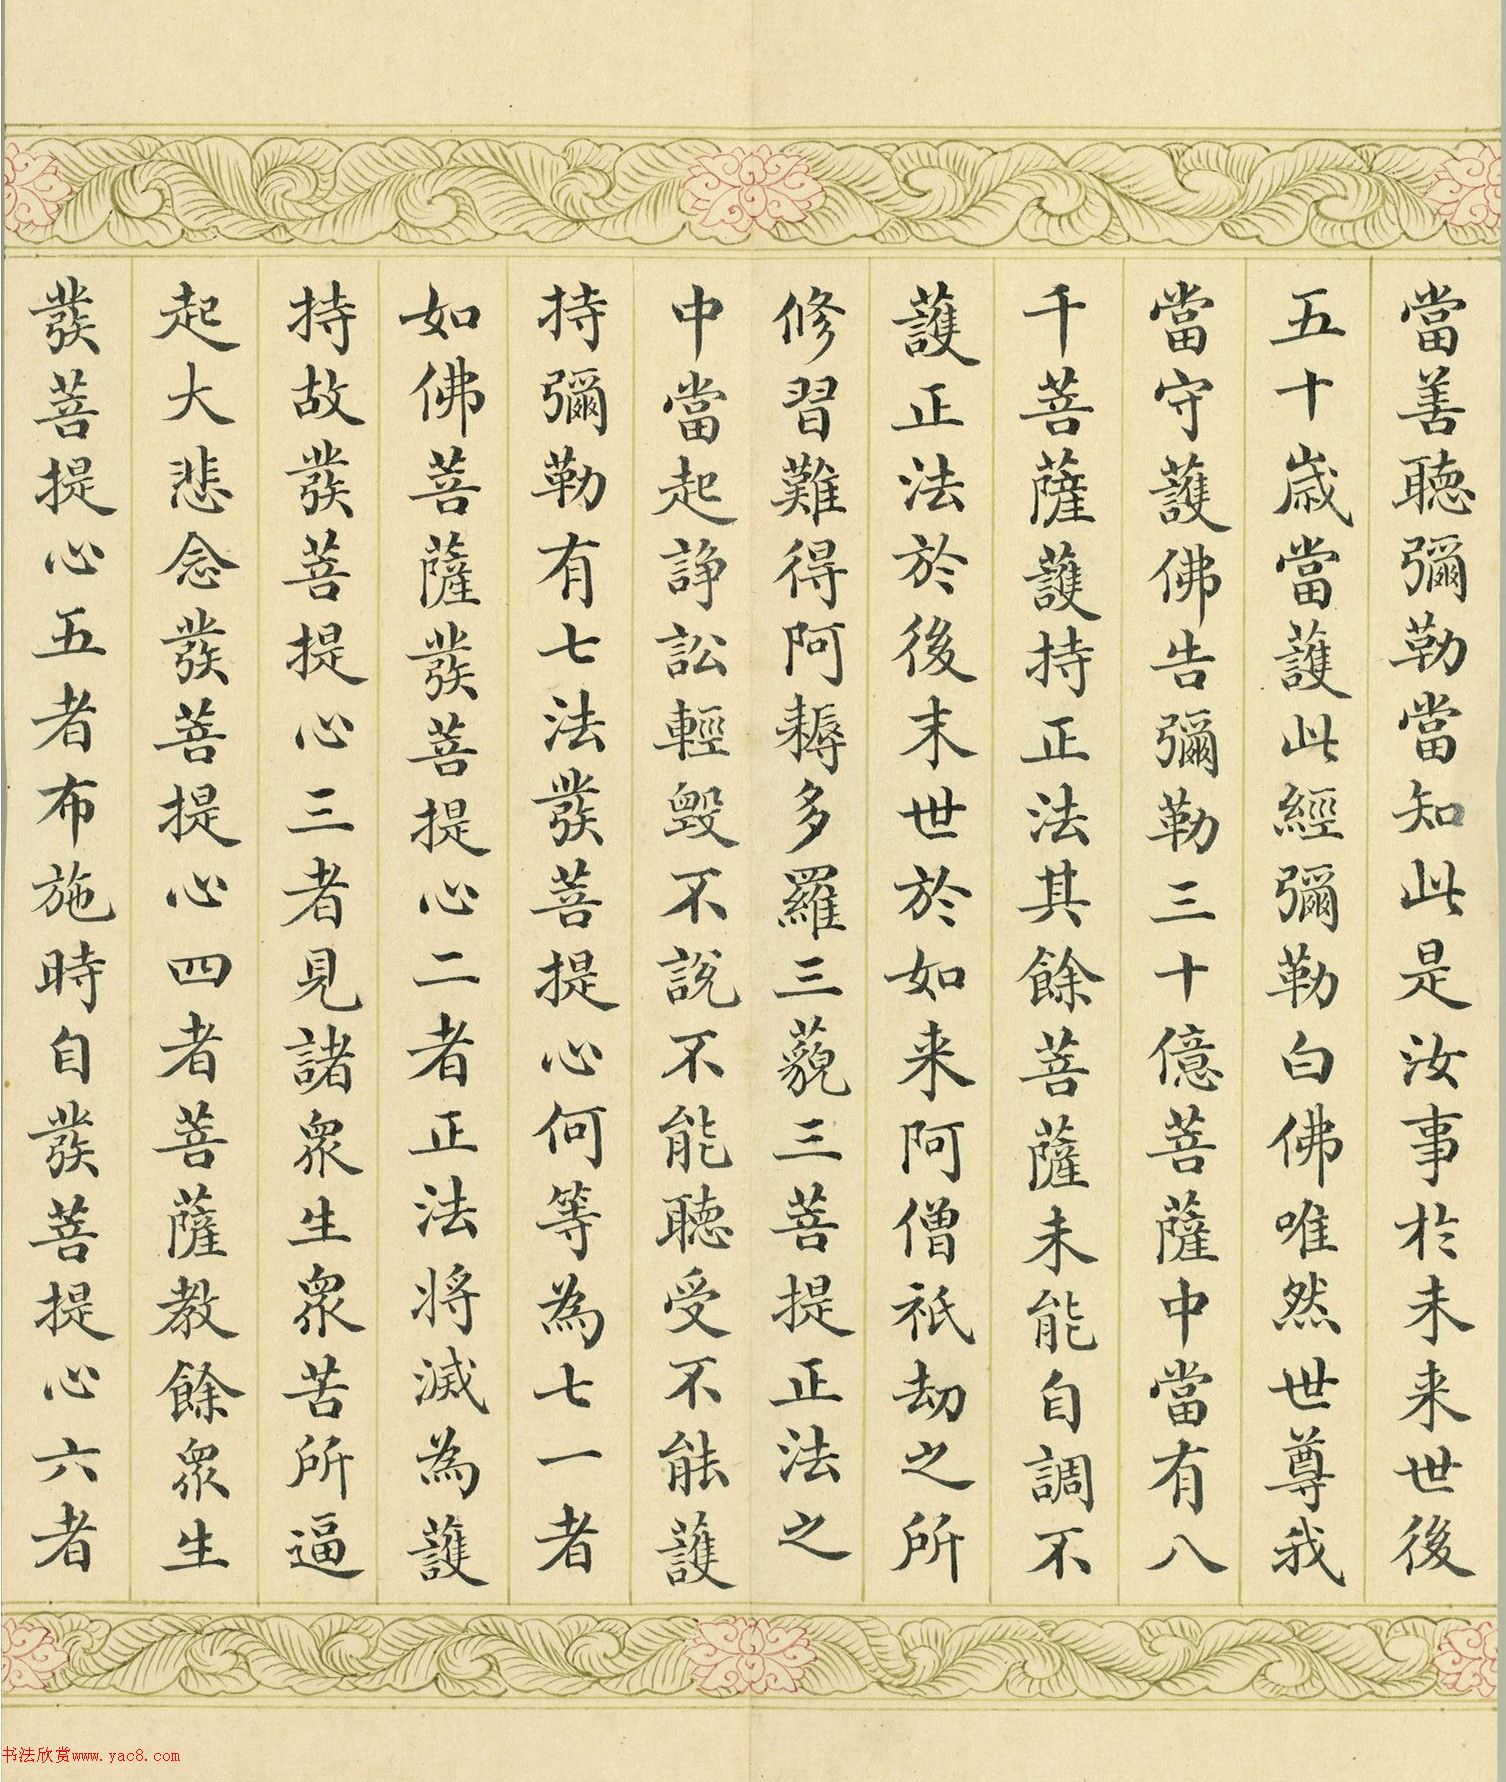 當善聽彌勒當知此是汝事於未来世後
五十歲當護此經彌勒白佛唯然世尊我
當守護佛告彌勒三十億菩薩中當有八
千菩薩護持正法其餘菩薩未能自調不
護正法於後末世於如来阿僧祇劫之所
修習難得阿耨多羅三藐三菩提正法之
中當起諍訟輕毀不說不能聽受不能護
持彌勒有七法發菩提心何等為七一者
如佛菩薩發菩提心二者正法將滅為護
持故發菩提心三者見諸眾生眾苦所逼
起大悲念發菩提心四者菩薩教餘眾生
發菩提心五者布施時自發菩提心六者
书法欣赏www.yac8.com